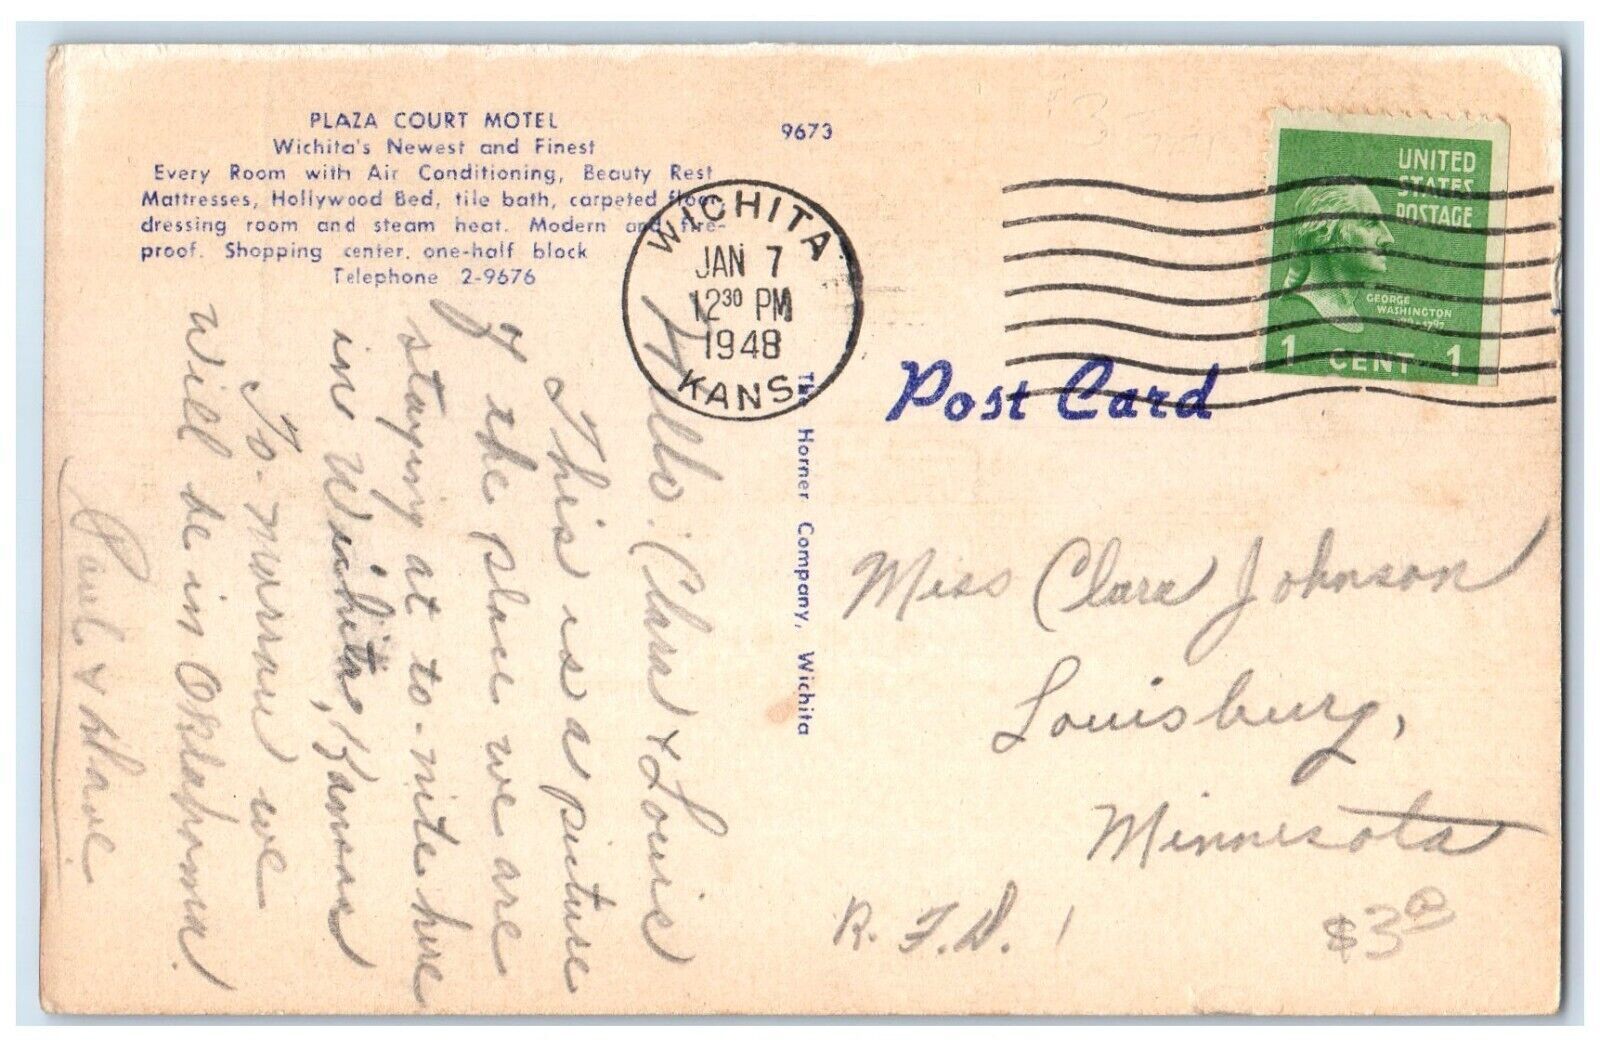 PLAZA COURT MOTEL
Wichita's Newest and Finest
Every Room with Air Conditioning, Beauty Rest
Mattresses, Hollywood Bed, tile bath, carpeted floor,
dressing room and steam heat. Modern and fire-
proof. Shopping center, one-half block
Telephone 2-9676
9673
WICHITA
JAN 7
12 30 PM
1948
KANS.
UNITED
STATES
POSTAGE
GEORGE
WASHINGTON
1 CENT 1
Post Card
The Horner Company, Wichita
Hello Clara & Louie
This is a picture
of the place we are
staying at to-nite here
in Wichita, Kansas
To-morrow we
will be in Oklahoma.
Paul & Dave
Miss Clara Johnson
Louisburg,
Minnesota
R.F.D. 1
$3